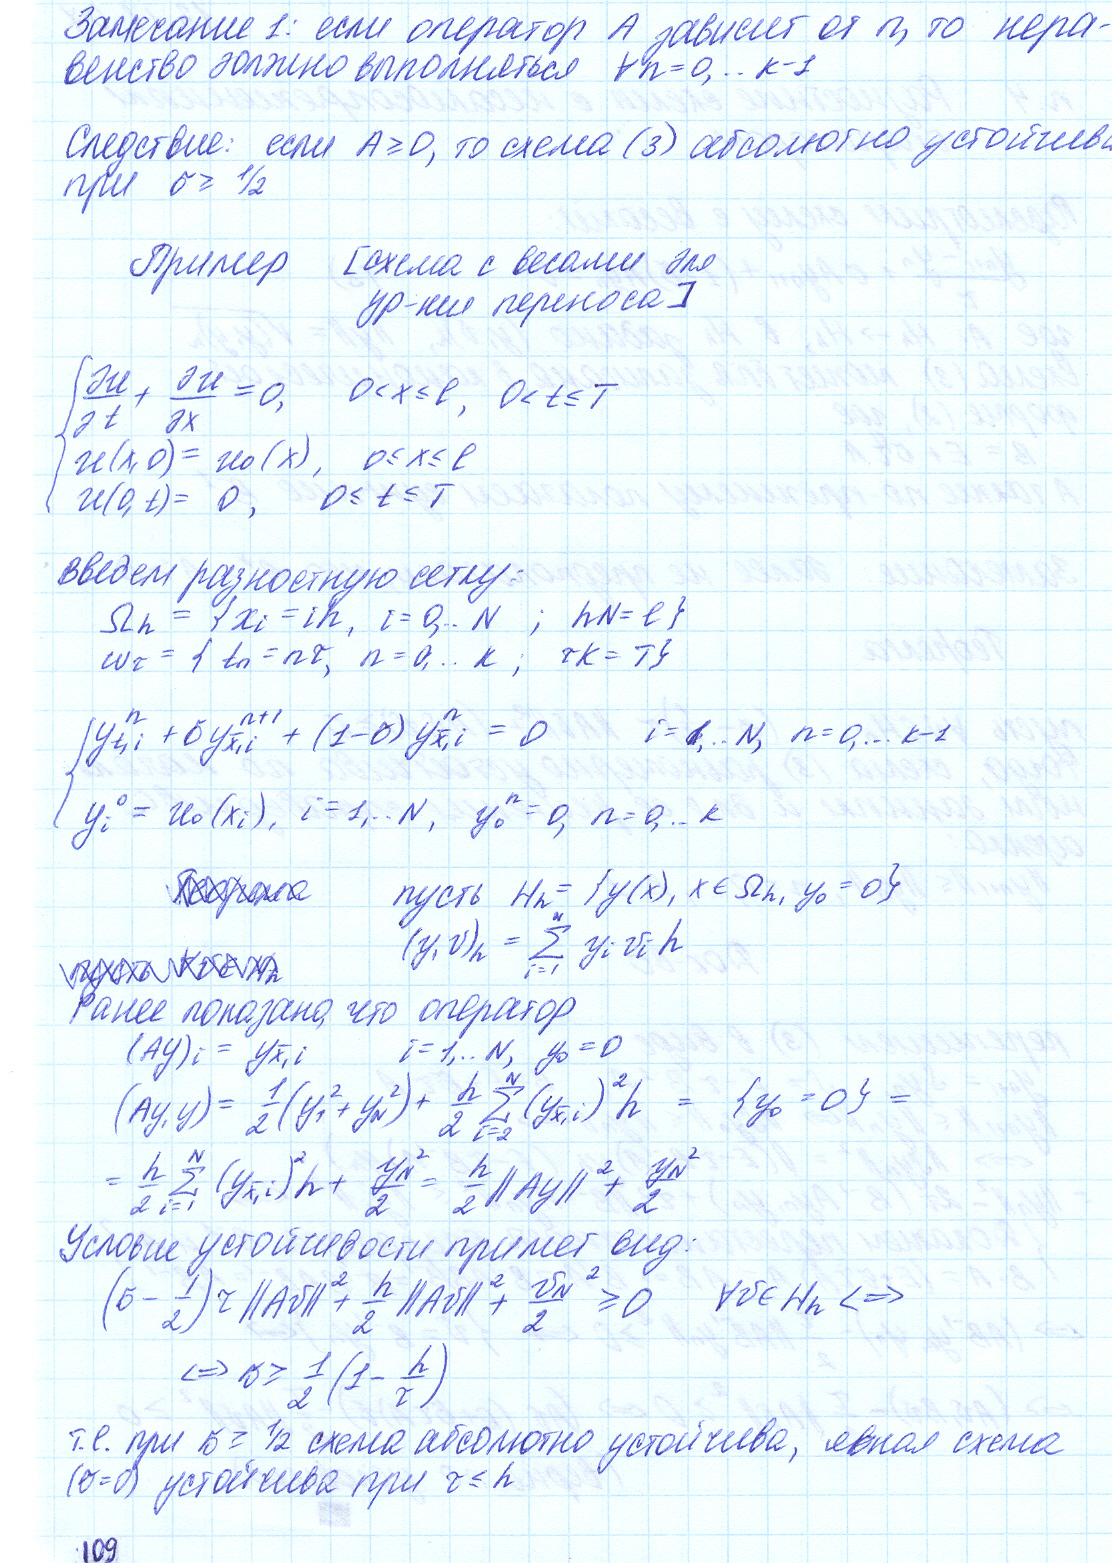 Замечание 1: если оператор A зависит от n, то нера-
венство должно выполняться ∀n=0,..k-1
Следствие: если A≥0, то схема (3) абсолютно устойчива
при σ≥1/2
Пример [схема с весами для
ур-ния переноса]
∂u/∂t + ∂u/∂x = 0, 0<x≤l, 0<t≤T
u(x,0) = u₀(x), 0≤x≤l
u(0,t) = 0, 0≤t≤T
введем разностную сетку:
Ωₕ = {xᵢ = ih, i=0,..N ; hN=l}
ωτ = {tₙ=nτ, n=0,..k ; τk=T}
yⁿ_{t,i} + σy^{n+1}_{x̄,i} + (1-σ)yⁿ_{x̄,i} = 0 i=1,..N, n=0,..k-1
yᵢ⁰ = u₀(xᵢ), i=1,..N, y₀ⁿ=0, n=0,..k
пусть Hₕ = {y(x), x∈Ωₕ, y₀=0}
(y,v)ₕ = ∑_{i=1}^{N} yᵢvᵢh
Ранее показано, что оператор
(Ay)ᵢ = y_{x̄,i} i=1,..N, y₀=0
(Ay,y) = 1/2(y₁²+y_N²) + h/2 ∑_{i=2}^{N} (y_{x̄,i})²h = {y₀=0} =
= h/2 ∑_{i=1}^{N} (y_{x̄,i})²h + y_N²/2 = h/2 ||Ay||² + y_N²/2
Условие устойчивости примет вид:
(σ - 1/2)τ||Av||² + h/2 ||Av||² + v_N²/2 ≥0 ∀v∈Hₕ <=>
<=> σ≥ 1/2 (1 - h/τ)
т.е. при σ≥1/2 схема абсолютно устойчива, явная схема
(σ=0) устойчива при τ≤h
109